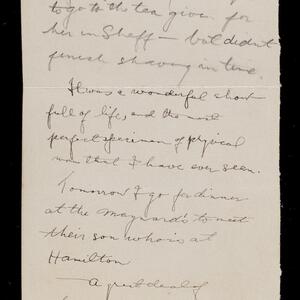 to go to the tea given for
her in Sheff — but didn't
finish shaving in time.
It was a wonderful show
full of life, and the most
perfect specimen of physical
man that I have ever seen.
Tomorrow I go for dinner
at the Maynard's to meet
their son who is at
Hamilton
A great deal of